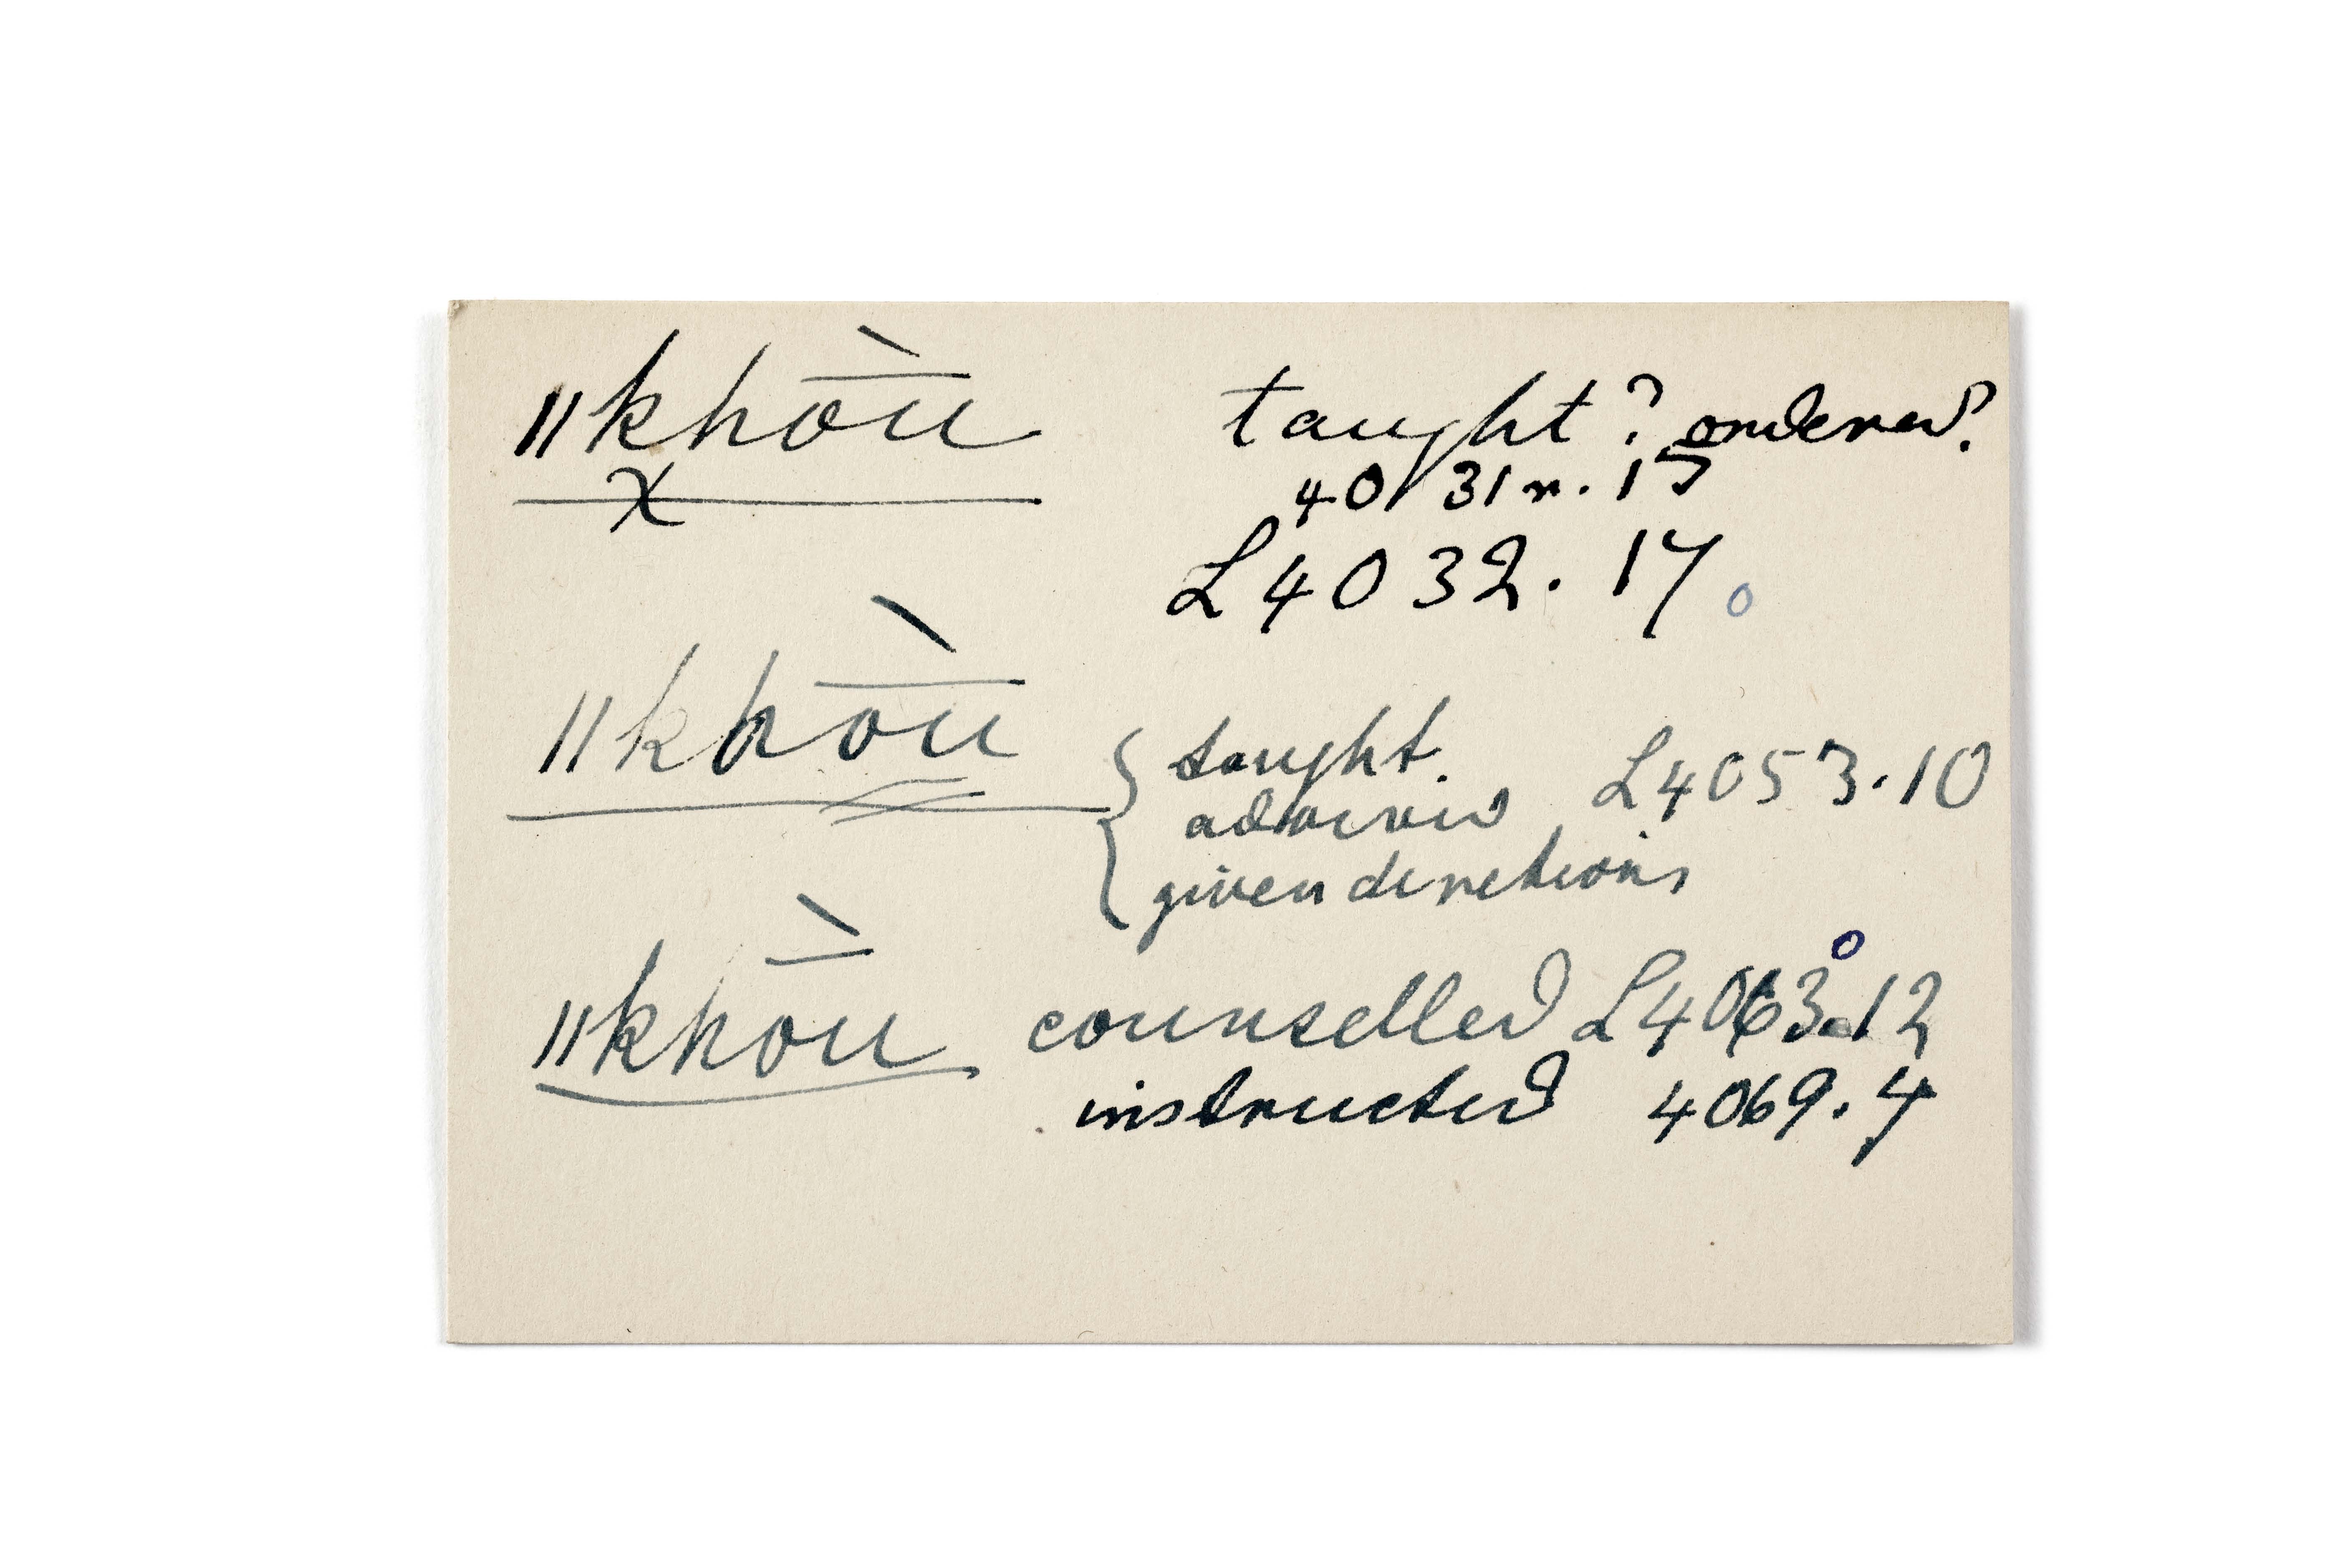 ǁkho͞ù taught? ordered?
χ 4031r.15
L4032.17
ǁkho͞ù { taught. L4053.10
advised
given directions
ǁkho͞ù counselled L4063.12
instructed 4069.4